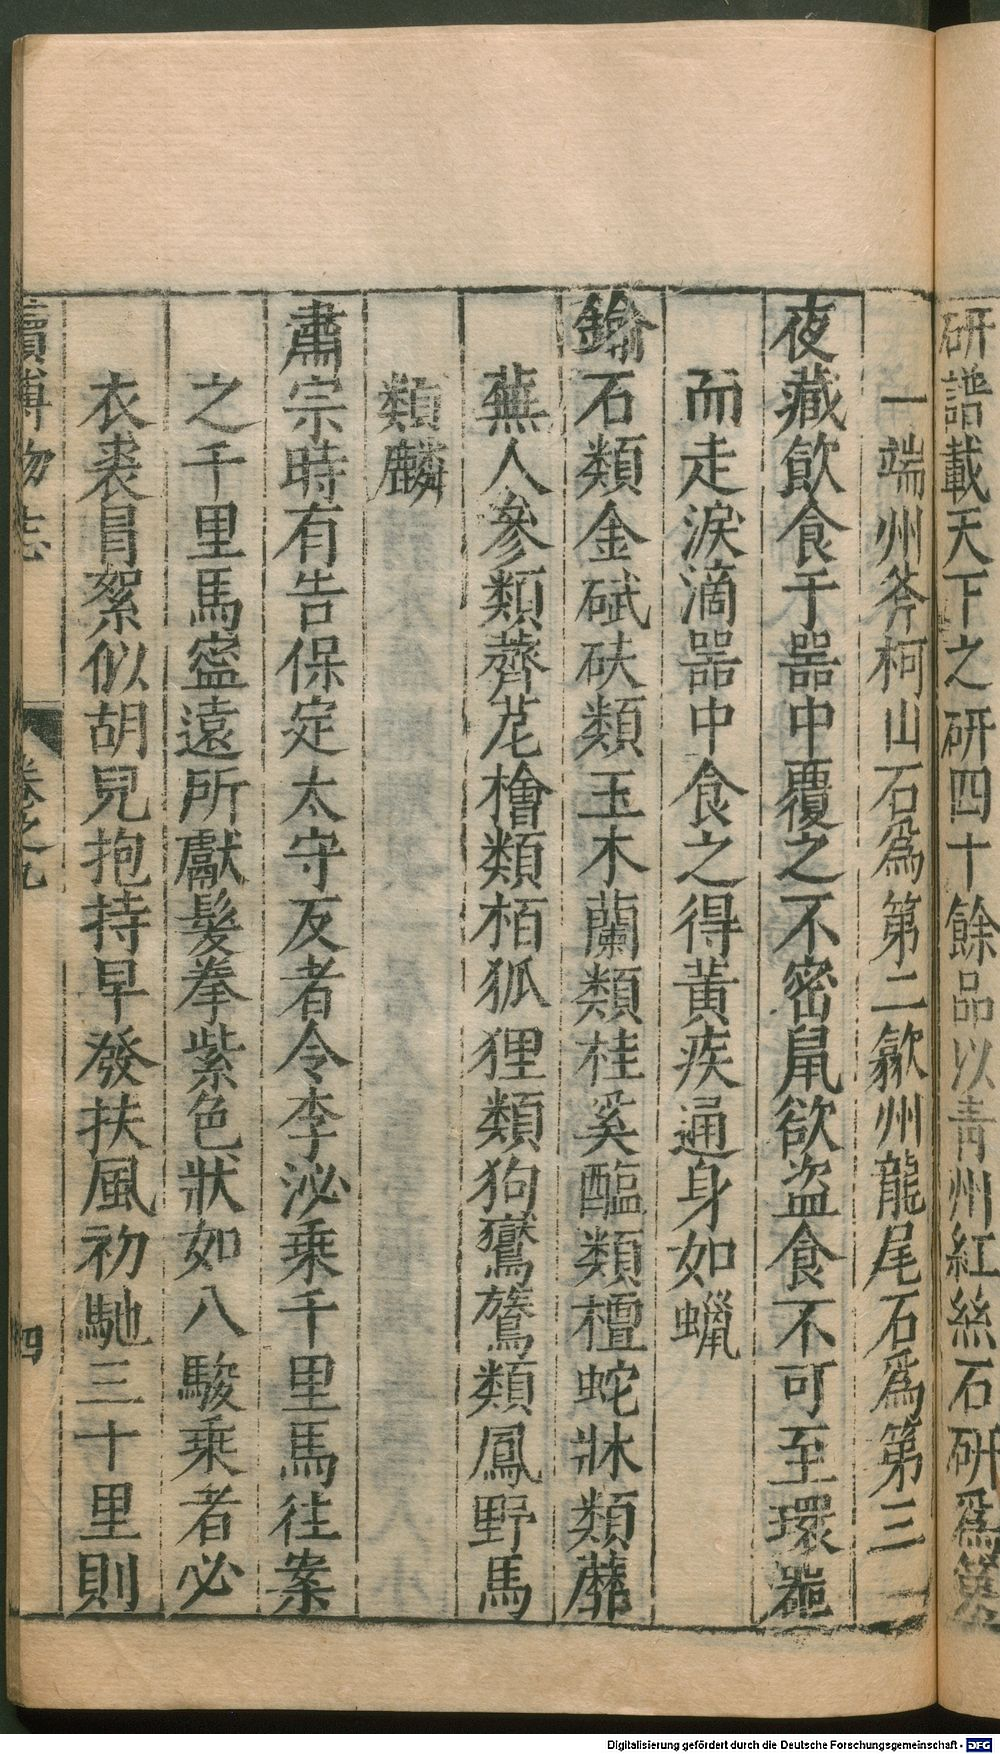 研譜載天下之研四十餘品以青州紅絲石研爲第
一端州斧柯山石爲第二歙州龍尾石爲第三
夜藏飲食于器中覆之不密鼠欲盜食不可至環器
而走淚滴器中食之得黃疾通身如蠟
鍮石類金碔砆類玉木蘭類桂奚醖類檀蛇牀類蘼
蕪人參類薺苨檜類栢狐狸類狗鸑鷟類鳳野馬
類麟
肅宗時有告保定太守反者令李泌乗千里馬往案
之千里馬寍遠所獻髮拳紫色狀如八駿乗者必
衣裘冒絮似胡兒抱持早發扶風初馳三十里則
續博物志
卷之九
四
Digitalisierung gefördert durch die Deutsche Forschungsgemeinschaft - DFG